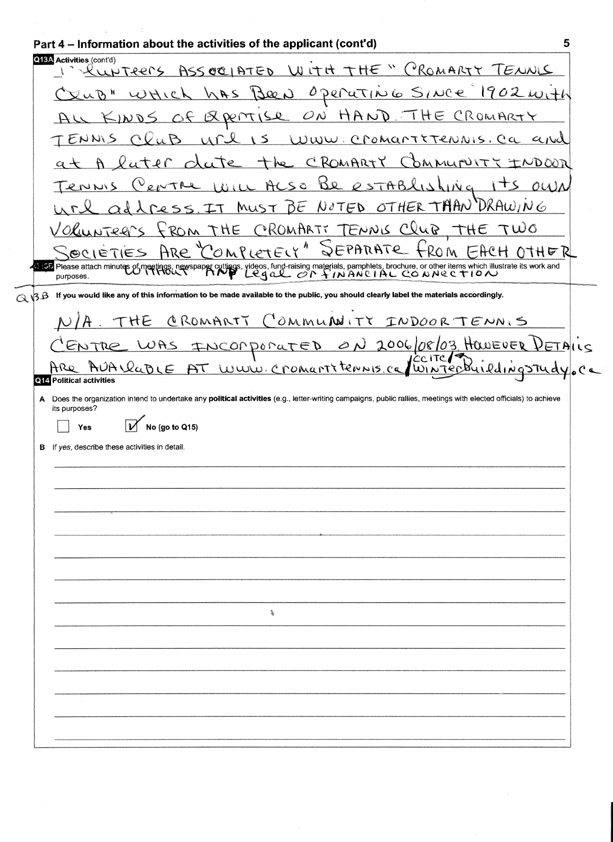 Part 4 – Information about the activities of the applicant (cont'd) 5
Q13A Activities (cont'd)
VOLUNTEERS ASSOCIATED WITH THE "CROMARTY TENNIS
CLUB" WHICH HAS BEEN OPERATING SINCE 1902 with
ALL KINDS OF EXPERTISE ON HAND. THE CROMARTY
TENNIS CLUB url IS www.cromartytennis.ca and
at A later date the CROMARTY COMMUNITY INDOOR
TENNIS CENTRE WILL ALSO BE establishing ITS OWN
url address. IT MUST BE NOTED OTHER THAN DRAWING
VOLUNTEERS FROM THE CROMARTY TENNIS CLUB, THE TWO
SOCIETIES ARE "COMPLETELY" SEPARATE FROM EACH OTHER
Please attach minutes of meetings, newspaper cuttings, videos, fund-raising materials, pamphlets, brochure, or other items which illustrate its work and
purposes.
WITHOUT ANY Legal OR FINANCIAL CONNECTION
Q13B If you would like any of this information to be made available to the public, you should clearly label the materials accordingly.
N/A. THE CROMARTY COMMUNITY INDOOR TENNIS
CENTRE WAS INCORPORATED ON 2006/08/03. HOWEVER DETAILS
ARE AVAILABLE AT www.cromartytennis.ca/CCITC/WINTERbuildingstudy.ca
Q14 Political activities
A Does the organization intend to undertake any political activities (e.g., letter-writing campaigns, public rallies, meetings with elected officials) to achieve
its purposes?
Yes No (go to Q15)
B If yes, describe these activities in detail.